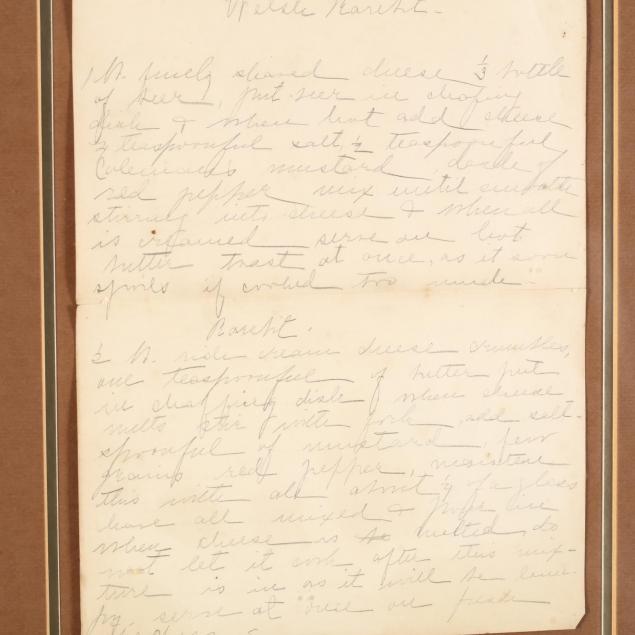 Welsh Rarebit -
1 lb. finely shaved cheese 1/3 bottle
of beer, put beer in chafing
dish & when hot add cheese
1/2 teaspoonful salt, 1/2 teaspoonful
Coleman's mustard, dash of
red pepper mix until smooth
stirring into cheese & when all
is creamed serve on hot
butter toast at once, as it soon
spoils if cooked too much -
Rarebit.
1/2 lb. rich cream cheese crumbled,
one teaspoonful of butter put
in chaffing dish, when cheese
melts stir with fork, add salt-
spoonful of mustard, few
grains red pepper, moisten
this with ale about 1/2 of a glass
have all mixed & pour in
when cheese is melted, do
not let it cook after this mix-
ture is in as it will be
serve at once on fresh